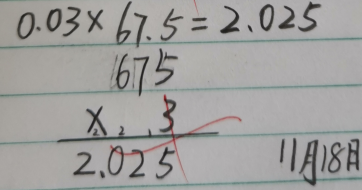 0.03×67.5=2.025
675
× 3
2.025
11月18日